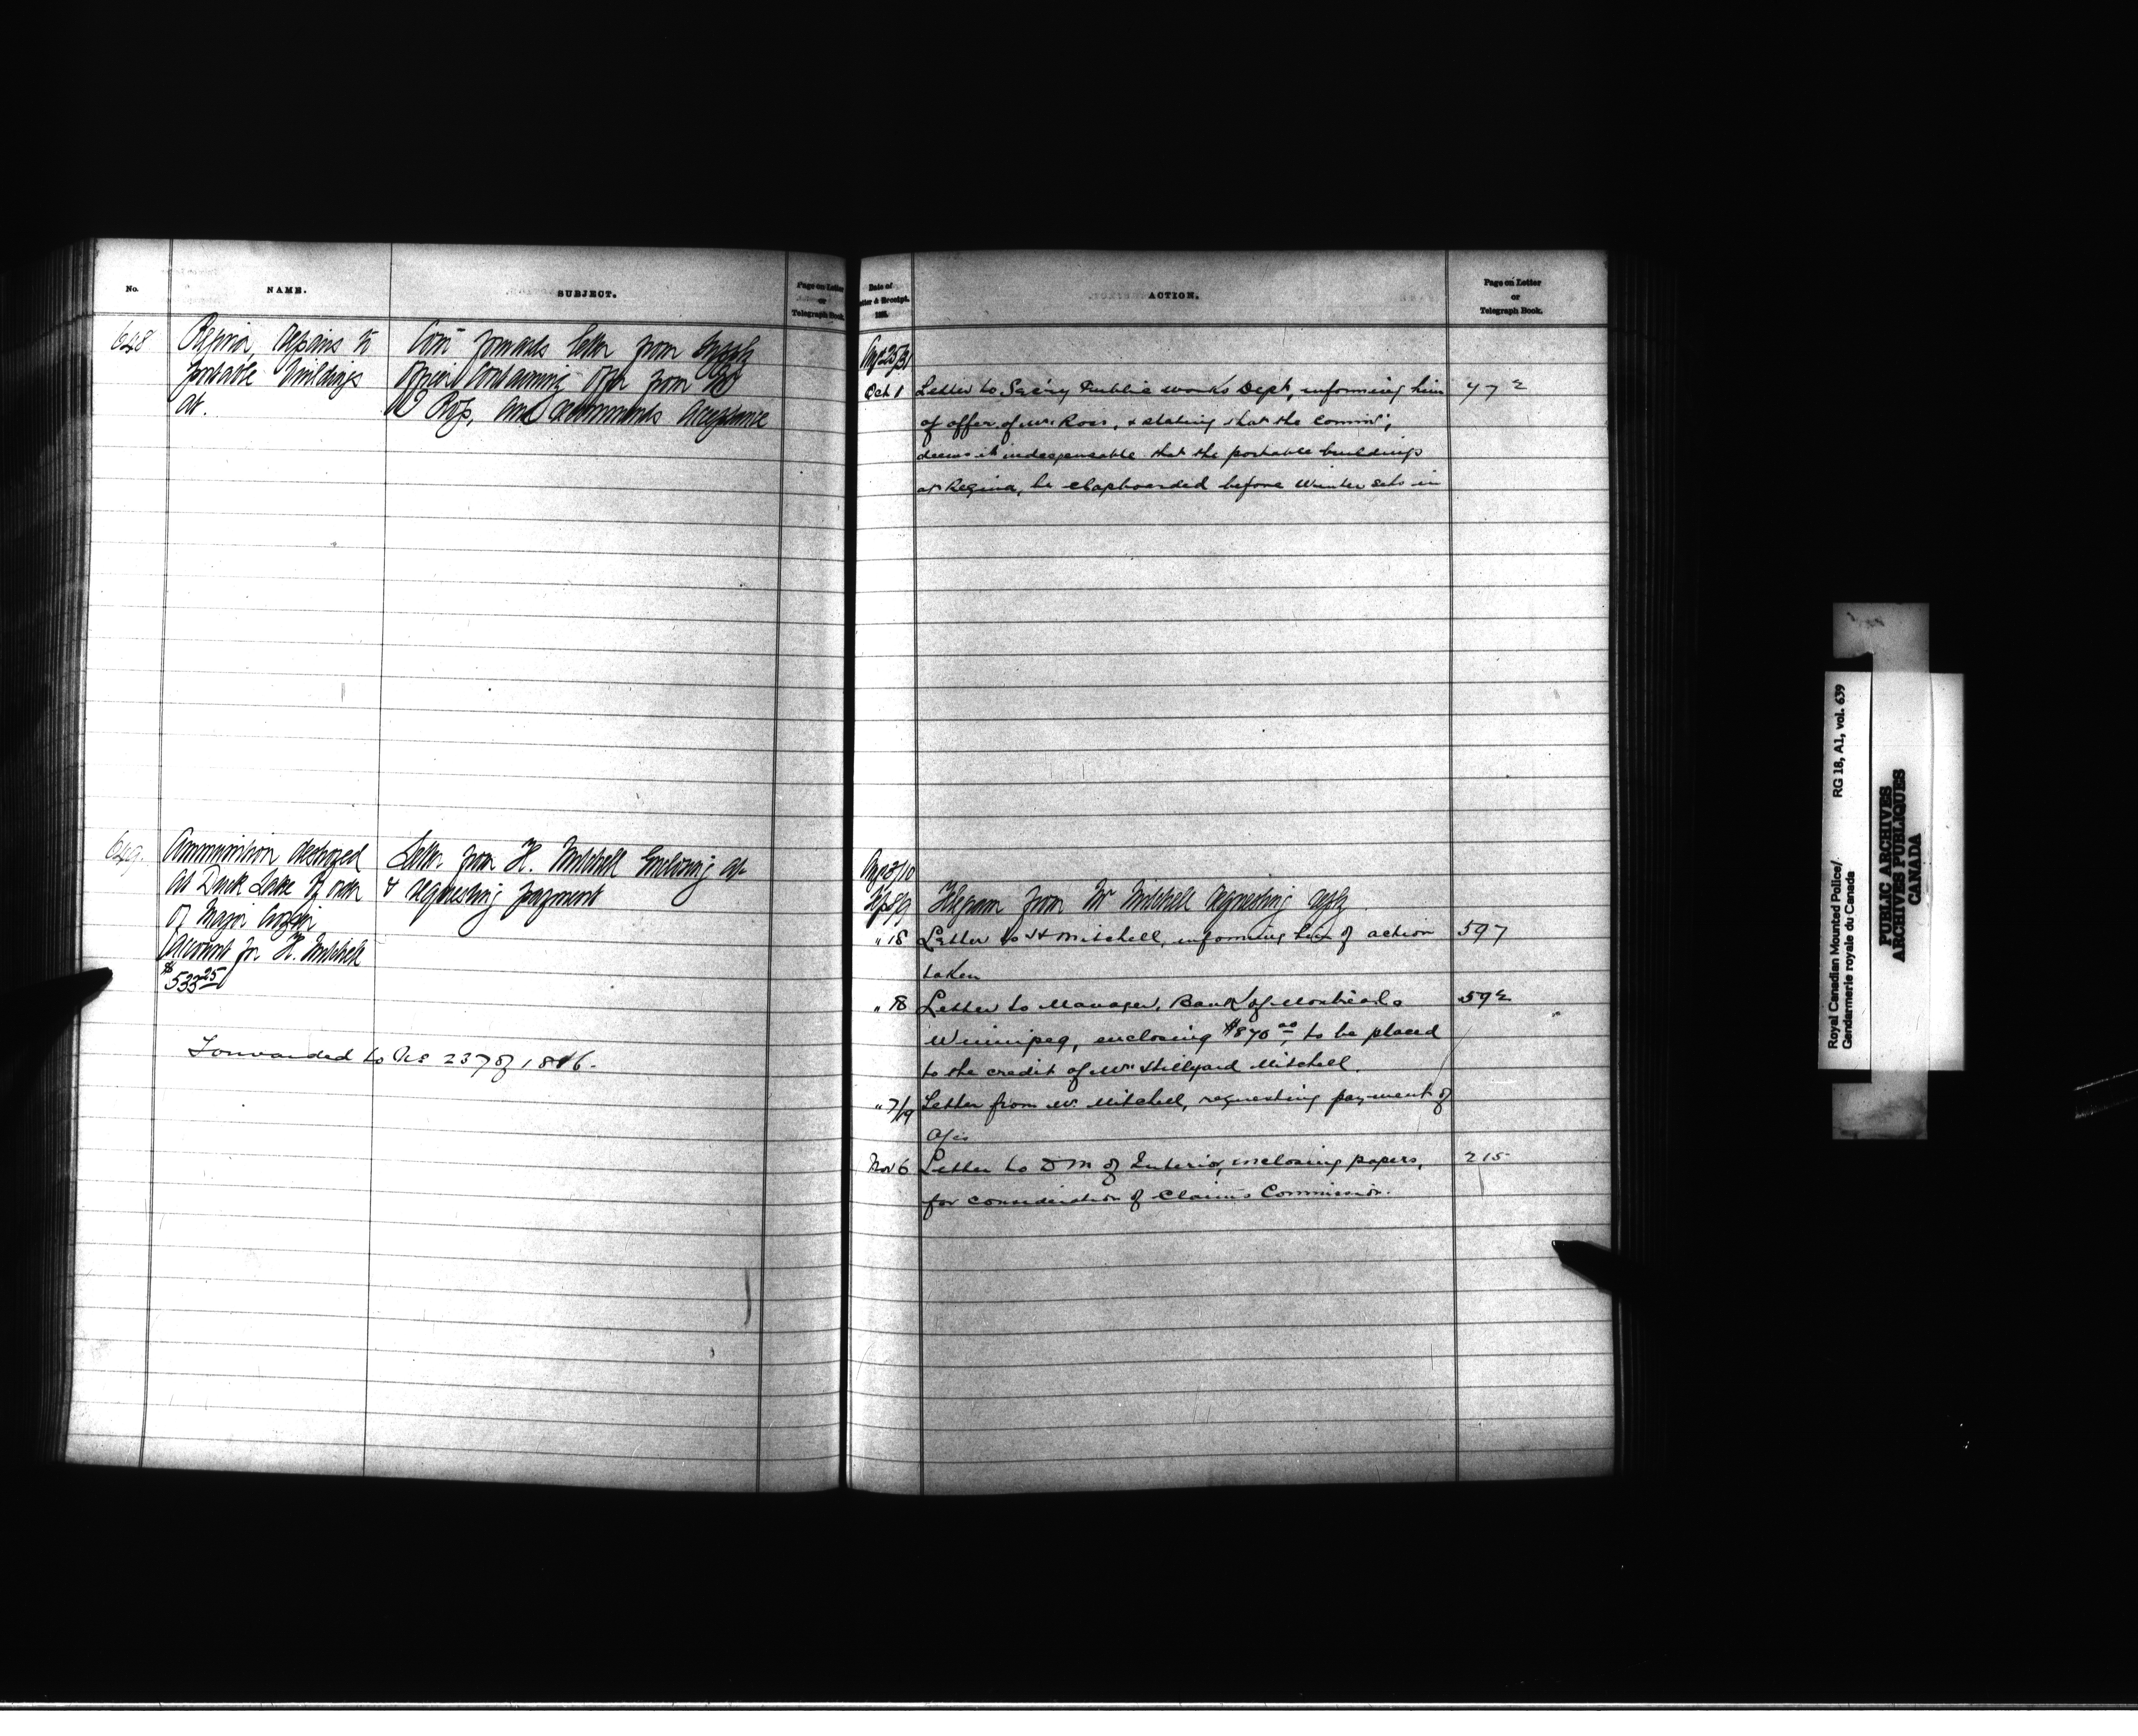 No.
NAME.
SUBJECT.
Page on Letter
or
Telegraph Book.
648
Regina, repairs to
portable buildings
at.
Com forwards letter from Supply
Officer containing offer from Mr
W Ross, and recommends acceptance
649.
Ammunition destroyed
at Duck Lake by order
of Major Crozier
Account for H. Mitchell
$533.25
Letter from H. Mitchell Enclosing a/c
& requesting payment
Forwarded to No 237 of 1886.
Date of
Letter & Receipt.
188.
ACTION.
Page on Letter
or
Telegraph Book.
Aug 25/31
Oct 1 Letter to Sec'ry Public Works Dept, informing him 472
of offer of Mr Ross, & stating that the Commr,
deems it indespensable that the portable buildings
at Regina, be clapboarded before Winter sets in
Aug 3/10
Sep 9/9 Telegram from Mr Mitchell requesting reply
" 18 Letter to H Mitchell, informing him of action 597
taken
" 18 Letter to Manager, Bank of Montreal 592
Winnipeg, enclosing $870.00, to be placed
to the credit of Mr Hillyard Mitchell.
" 7/19 Letter from Mr Mitchell, requesting payment of
a/c
Nov 6 Letter to D M of Interior, enclosing papers, 215
for consideration of Claims Commission.
Royal Canadian Mounted Police/
Gendarmerie royale du Canada
RG 18, A1, vol. 639
PUBLIC ARCHIVES
ARCHIVES PUBLIQUES
CANADA